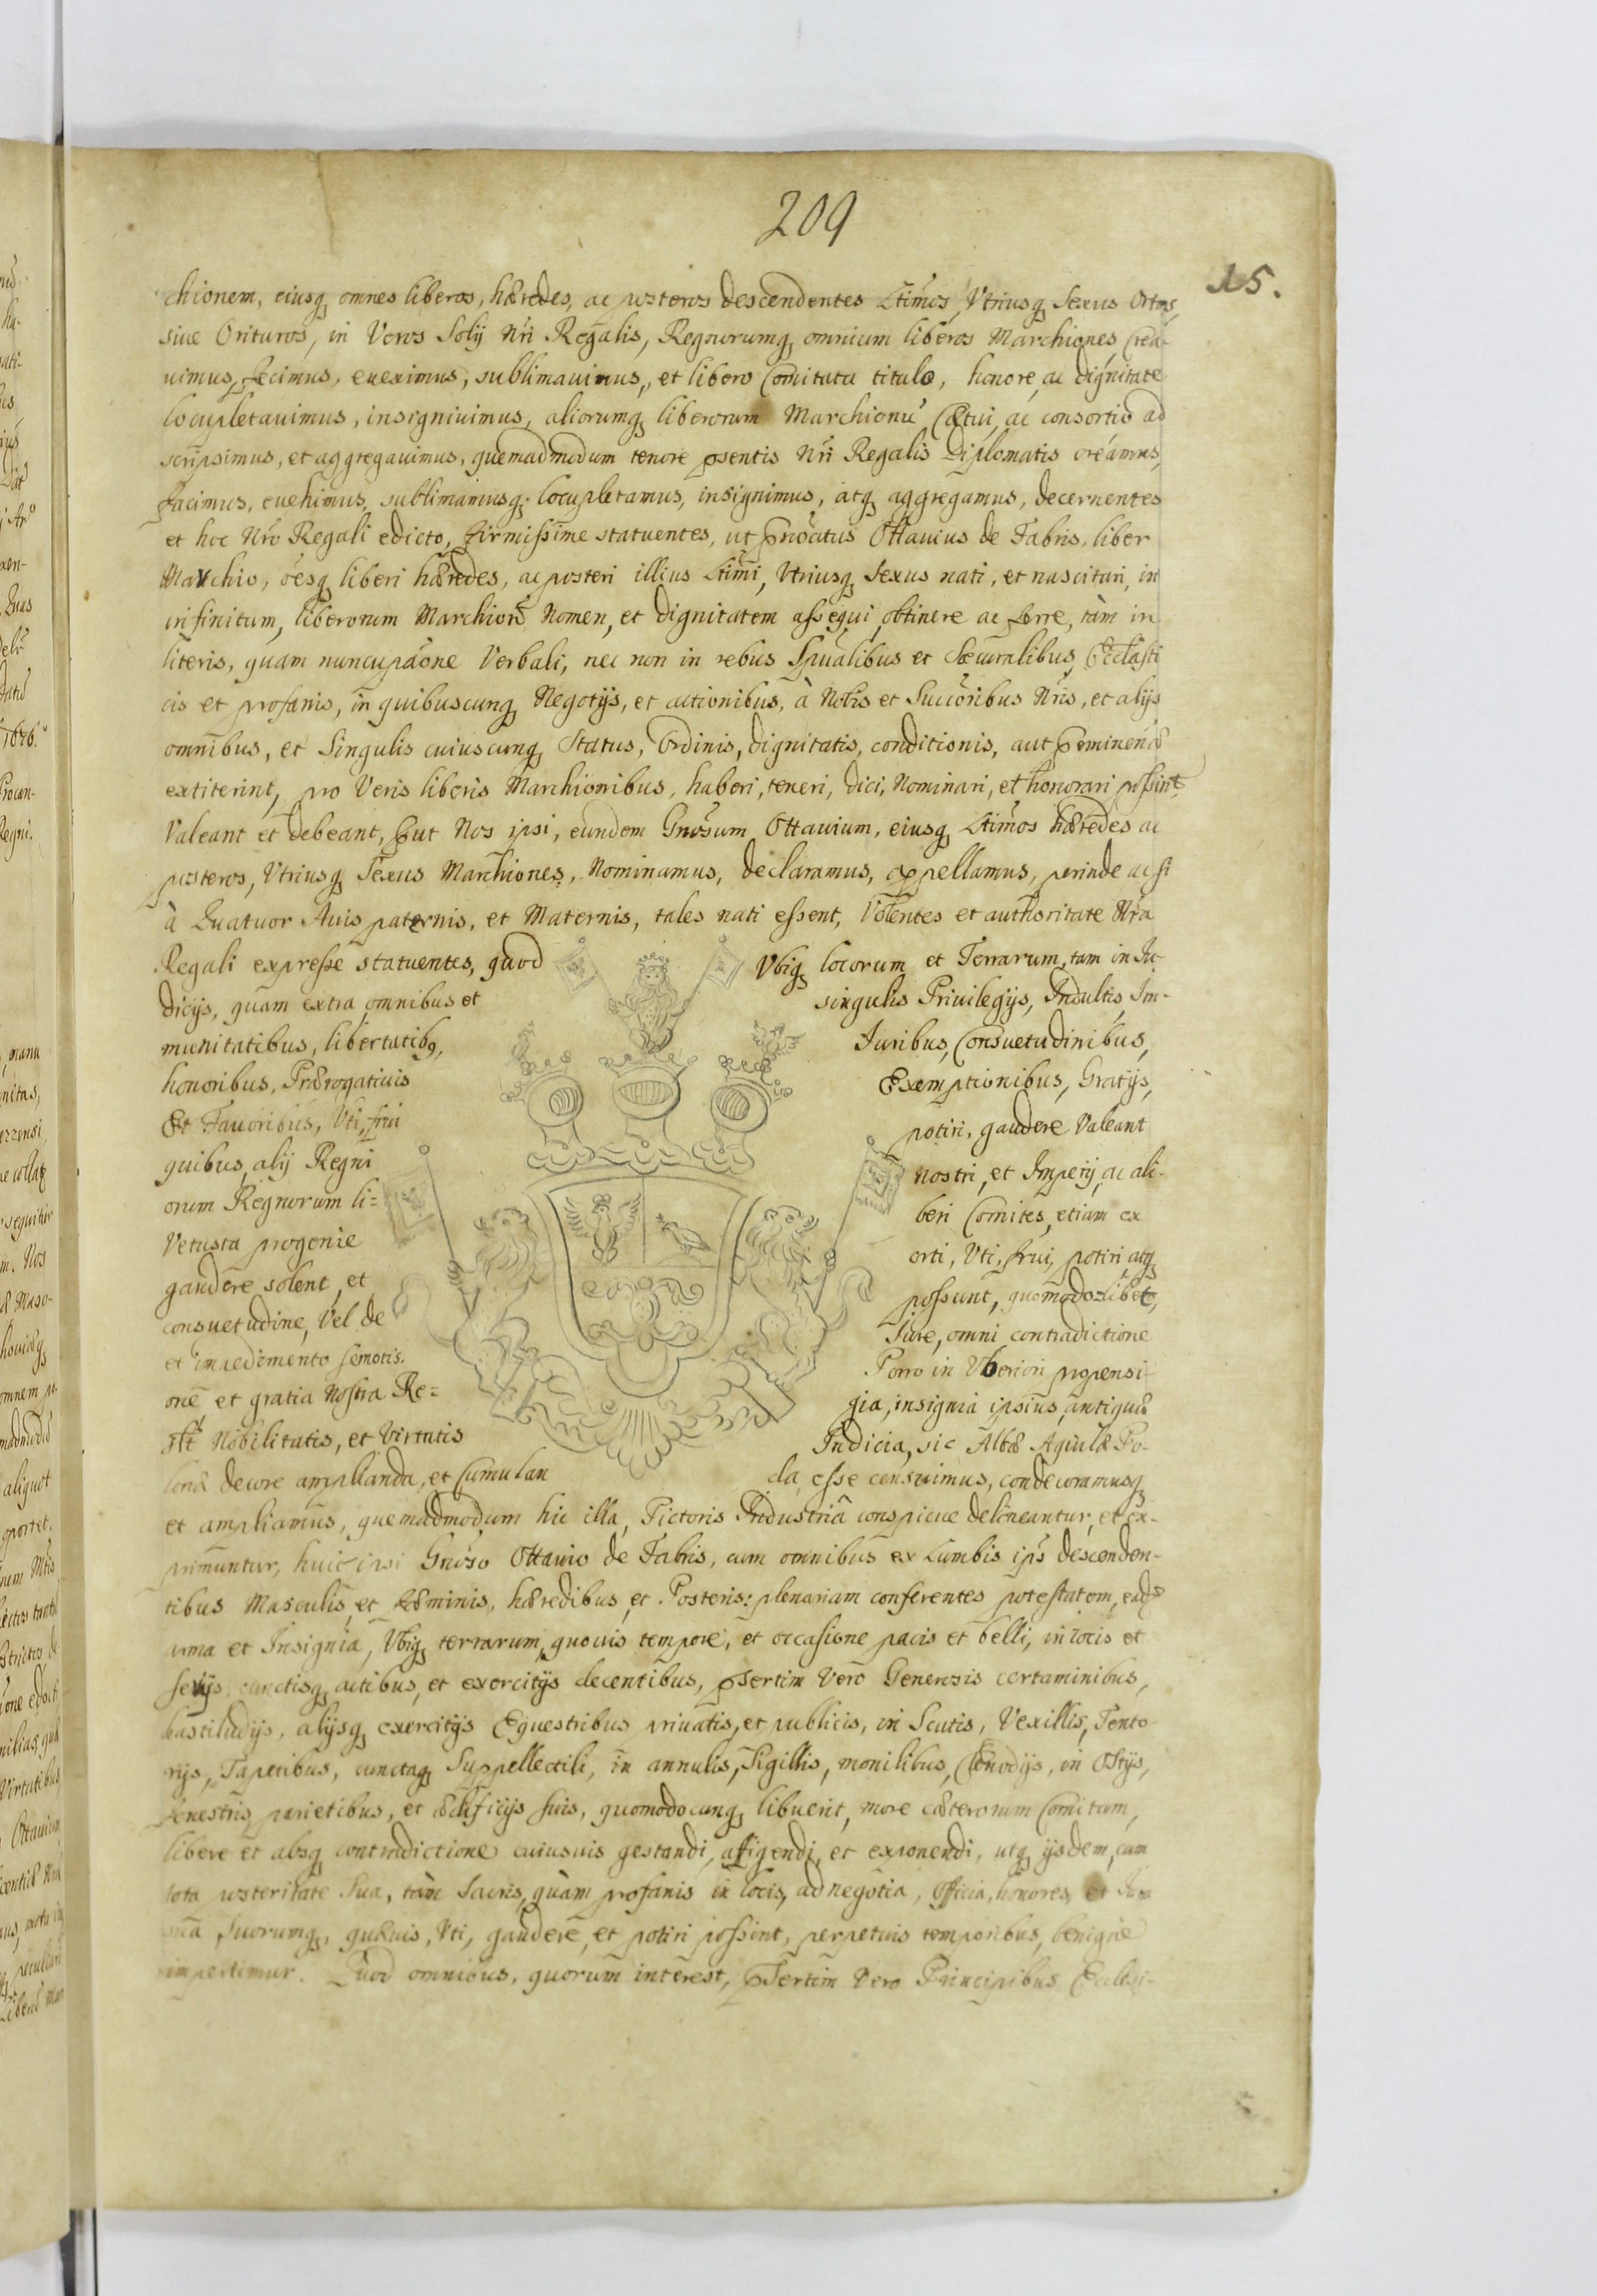 209
15.
chionem, eiusq omnes liberos, hæredes, ac posteros descendentes Ltimos, Vtriusq Sexus Ortos,
siue Orituros, in Veros Solij Nri Regalis, Regnorumq omnium liberos Marchiones crea-
uimus, fecimus, eueximus, sublimauimus, et libero Comitatu titulo, honore, ac dignitate
locupletauimus, insigniuimus, aliorumq liberorum Marchionū Cætui, ac consortio ad
scripsimus, et aggregauimus, quemadmodum tenore psentis Nri Regalis Diplomatis creamus,
facimus, euehimus, sublimamusq. locupletamus, insignimus, atq aggregamus, decernentes
et hoc Nro Regali edicto, firmissime statuentes, ut pnoatus Ottauius de Fabris, liber
Marchio, oesq liberi hæredes, ac posteri illius Ltimi, Vtriusq Sexus nati, et nascituri, in
infinitum, liberorum Marchionū Nomen, et dignitatem assequi, obtinere ac ferre, tàm in
literis, quam nuncupaone Verbali, nec non in rebus Spualibus et Sæcuralibus, Ecclasti
cis et profanis, in quibuscunq Negotijs, et actionibus, à Nobis et Succoribus Nris, et alijs
omnibus, et Singulis cuiuscunq Status, Ordinis, dignitatis, conditionis, aut pœminenæ
extiterint, pro Veris liberis Marchionibus, haberi, teneri, dici, Nominari, et honorari possint,
Valeant et debeant, put Nos ipsi, eundem Gnosum Ottauium, eiusq Ltimos hæredes ac
posteros, Vtriusq Sexus Marchiones, Nominamus, declaramus, appellamus, perinde ac si
à Quatuor Auis paternis, et Maternis, tales nati essent, Volentes et authoritate Nra
Regali expresse statuentes, quod Vbiq locorum et Terrarum, tam in Iu-
dicijs, quam extra, omnibus et singulis Priuilegijs, Indultis, Im-
munitatibus, libertatibq, Iuribus, Consuetudinibus,
honoribus, Prærogatiuis Exemptionibus, Gratijs,
Et Fauoribus, Vti, frui potiri, gaudere Valeant
quibus, alij Regni nostri, et Imperij, ac ali-
orum Regnorum li= beri Comites, etiam ex
Vetusta progenie orti, Vti, frui, potiri atq
gaudere solent, et possunt, quomodolibet,
consuetudine, Vel de Iure, omni contradictione
et impedimento semotis. Porro in Vberiori propensi
onē et gratia Nostra Re= gia, insignia ipsius, antiquæ
Nobilitatis, et Virtutis Indicia, sic Albæ Aquilæ Po-
lonæ decore amplianda, et Cumulan da, esse censuimus, condecoramusq
et ampliamus, quemadmodum hic illa, Pictoris Industriâ conspicue delineantur, et ex-
primuntur, huic ipsi Gnoso Ottauio de Fabris, cum omnibus ex Lumbis ips descenden-
tibus Masculis, et Fæminis, hæredibus, et Posteris: plenariam conferentes potestatem, ead
arma et Insignia, Vbiq terrarum, quouis tempore, et occasione pacis et belli, in locis et
cunctisq actibus, et exercitijs decentibus, psertim Vero Generosis certaminibus,
hastiludijs, alijsq exercitijs Equestribus priuatis, et publicis, in Scutis, Vexillis, Tento-
rijs, Tapetibus, cunctaq Suppellectili, in annulis, Sigillis, monilibus, Clenodijs, in Ostijs,
fenestris parietibus, et ædificijs suis, quomodocunq libuerit, more cæterorum Comitum,
libere et absq contradictione cuiusuis gestandi, affigendi, et exponendi, utq ijsdem, cum
tota posteritate sua, tàm Sacris, quàm profanis in locis, ad negotia, Officia, honores, et Iura
sua, suorumq, quæuis, Vti, gaudere, et potiri possint, perpetuis temporibus, benigne
impertimur. Quod omnibus, quorum interest, psertim Vero Principibus Ecclesi-